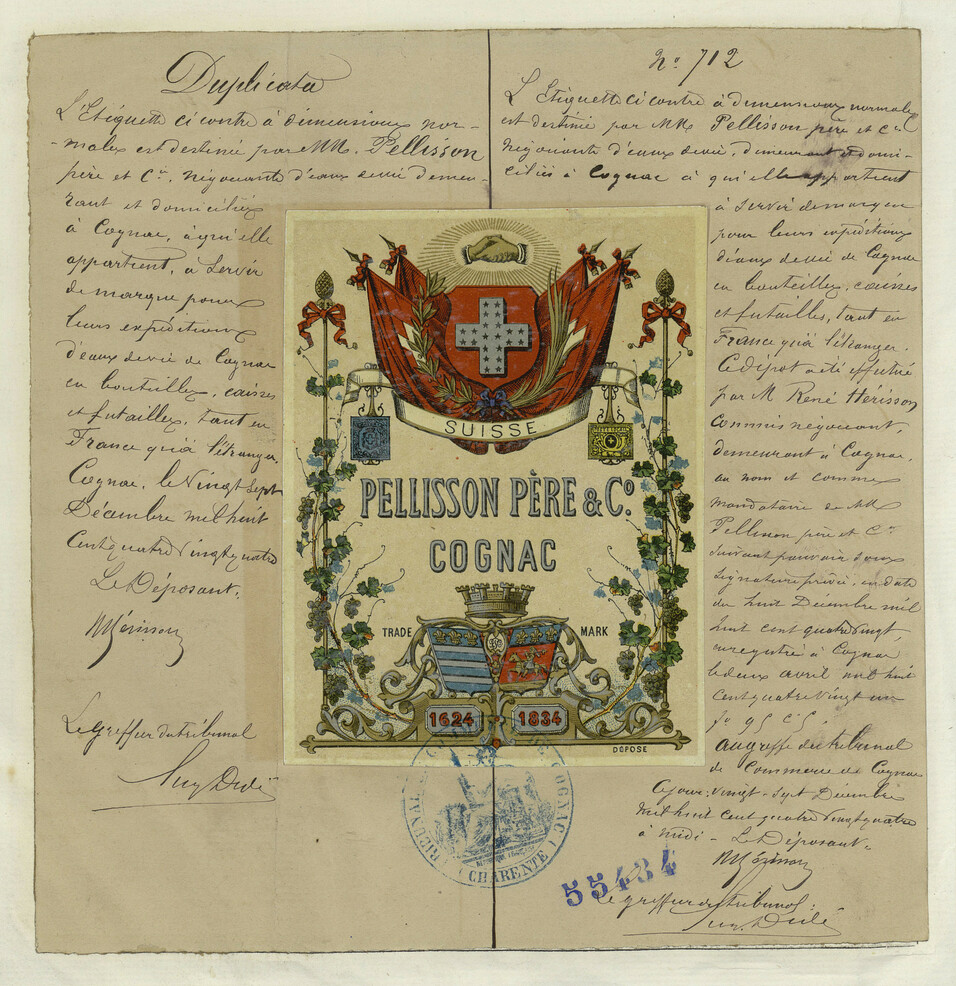 Duplicata
L'Etiquette ci contre à dimensions nor-
-males est destinée par MM. Pellisson
père et Cie, négociants d'eaux de vie demeu-
rant et domiciliés
à Cognac, à qui elle
appartient, à servir
de marque pour
leurs expéditions
d'eaux de vie de Cognac
en bouteilles, caisses
et futailles, tant en
France qu'à l'étranger.
Cognac, le vingt sept
Décembre mil huit
cent quatre vingt quatre
Le Déposant,
RHérisson
Le greffier du tribunal
No 712
L'Etiquette ci contre à dimensions normales
est destinée par MM Pellisson père et Cie
négociants d'eaux de vie, demeurant et domi-
ciliés à Cognac à qui elle appartient
à servir de marque
pour leurs expéditions
d'eaux de vie de Cognac
en bouteilles, caisses
et futailles, tant en
France qu'à l'étranger.
Ce dépôt a été effectué
par M René Hérisson
commis négociant,
demeurant à Cognac,
au nom et comme
mandataire de MM
Pellisson père et Cie
suivant pouvoir sous
signature privée, en date
du huit Décembre mil
huit cent quatre vingt,
enregistré à Cognac
le deux avril mil huit
cent quatre vingt un
fo 95 c. 5.
au greffe du tribunal
de Commerce de Cognac
ce jour, vingt-sept Décembre
mil huit cent quatre vingt quatre
à midi - Le Déposant.
RHérisson
Le greffier du tribunal:
SUISSE
PELLISSON PÈRE & Co.
COGNAC
TRADE MARK
1624 1834
DEPOSE
TRIBUNAL DE COGNAC
(CHARENTE)
55434